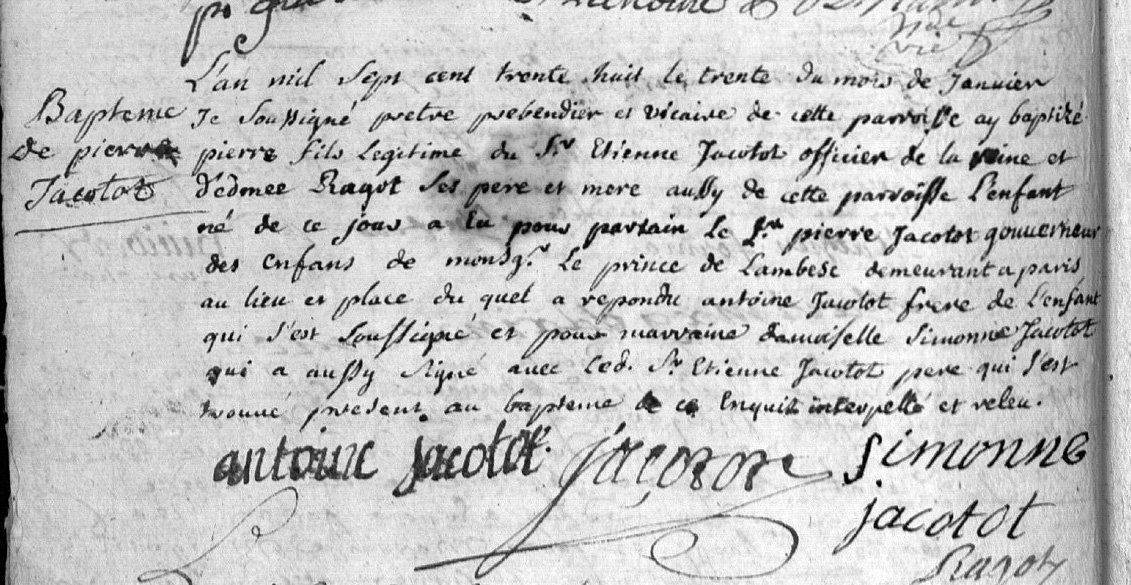 vic
L'an mil sept cent trente huit le trente du mois de Janvier
Bapteme
de pierre
Jacotot
Je soussigné pretre prebendier et vicaire de cette parroisse ay baptizé
pierre fils Legitime du Sr Etienne Jacotot officier de la reine et
d'edmee Ragot ses pere et mere aussy de cette parroisse L'enfant
né de ce jour a eu pour parrain le Sr pierre Jacotot gouverneur
des enfans de monsgr. Le prince de Lambesc demeurant a paris
au lieu et place du quel a repondu antoine Jacotot frere de L'enfant
qui s'est soussigné et pour marraine damoiselle Simonne Jacotot
qui a aussy signé avec Led. Sr Etienne Jacotot pere qui s'est
trouvé present au bapteme de ce Enquis interpellé et releu.
antoine jacotot jacotot Simonne
jacotot
Ragot